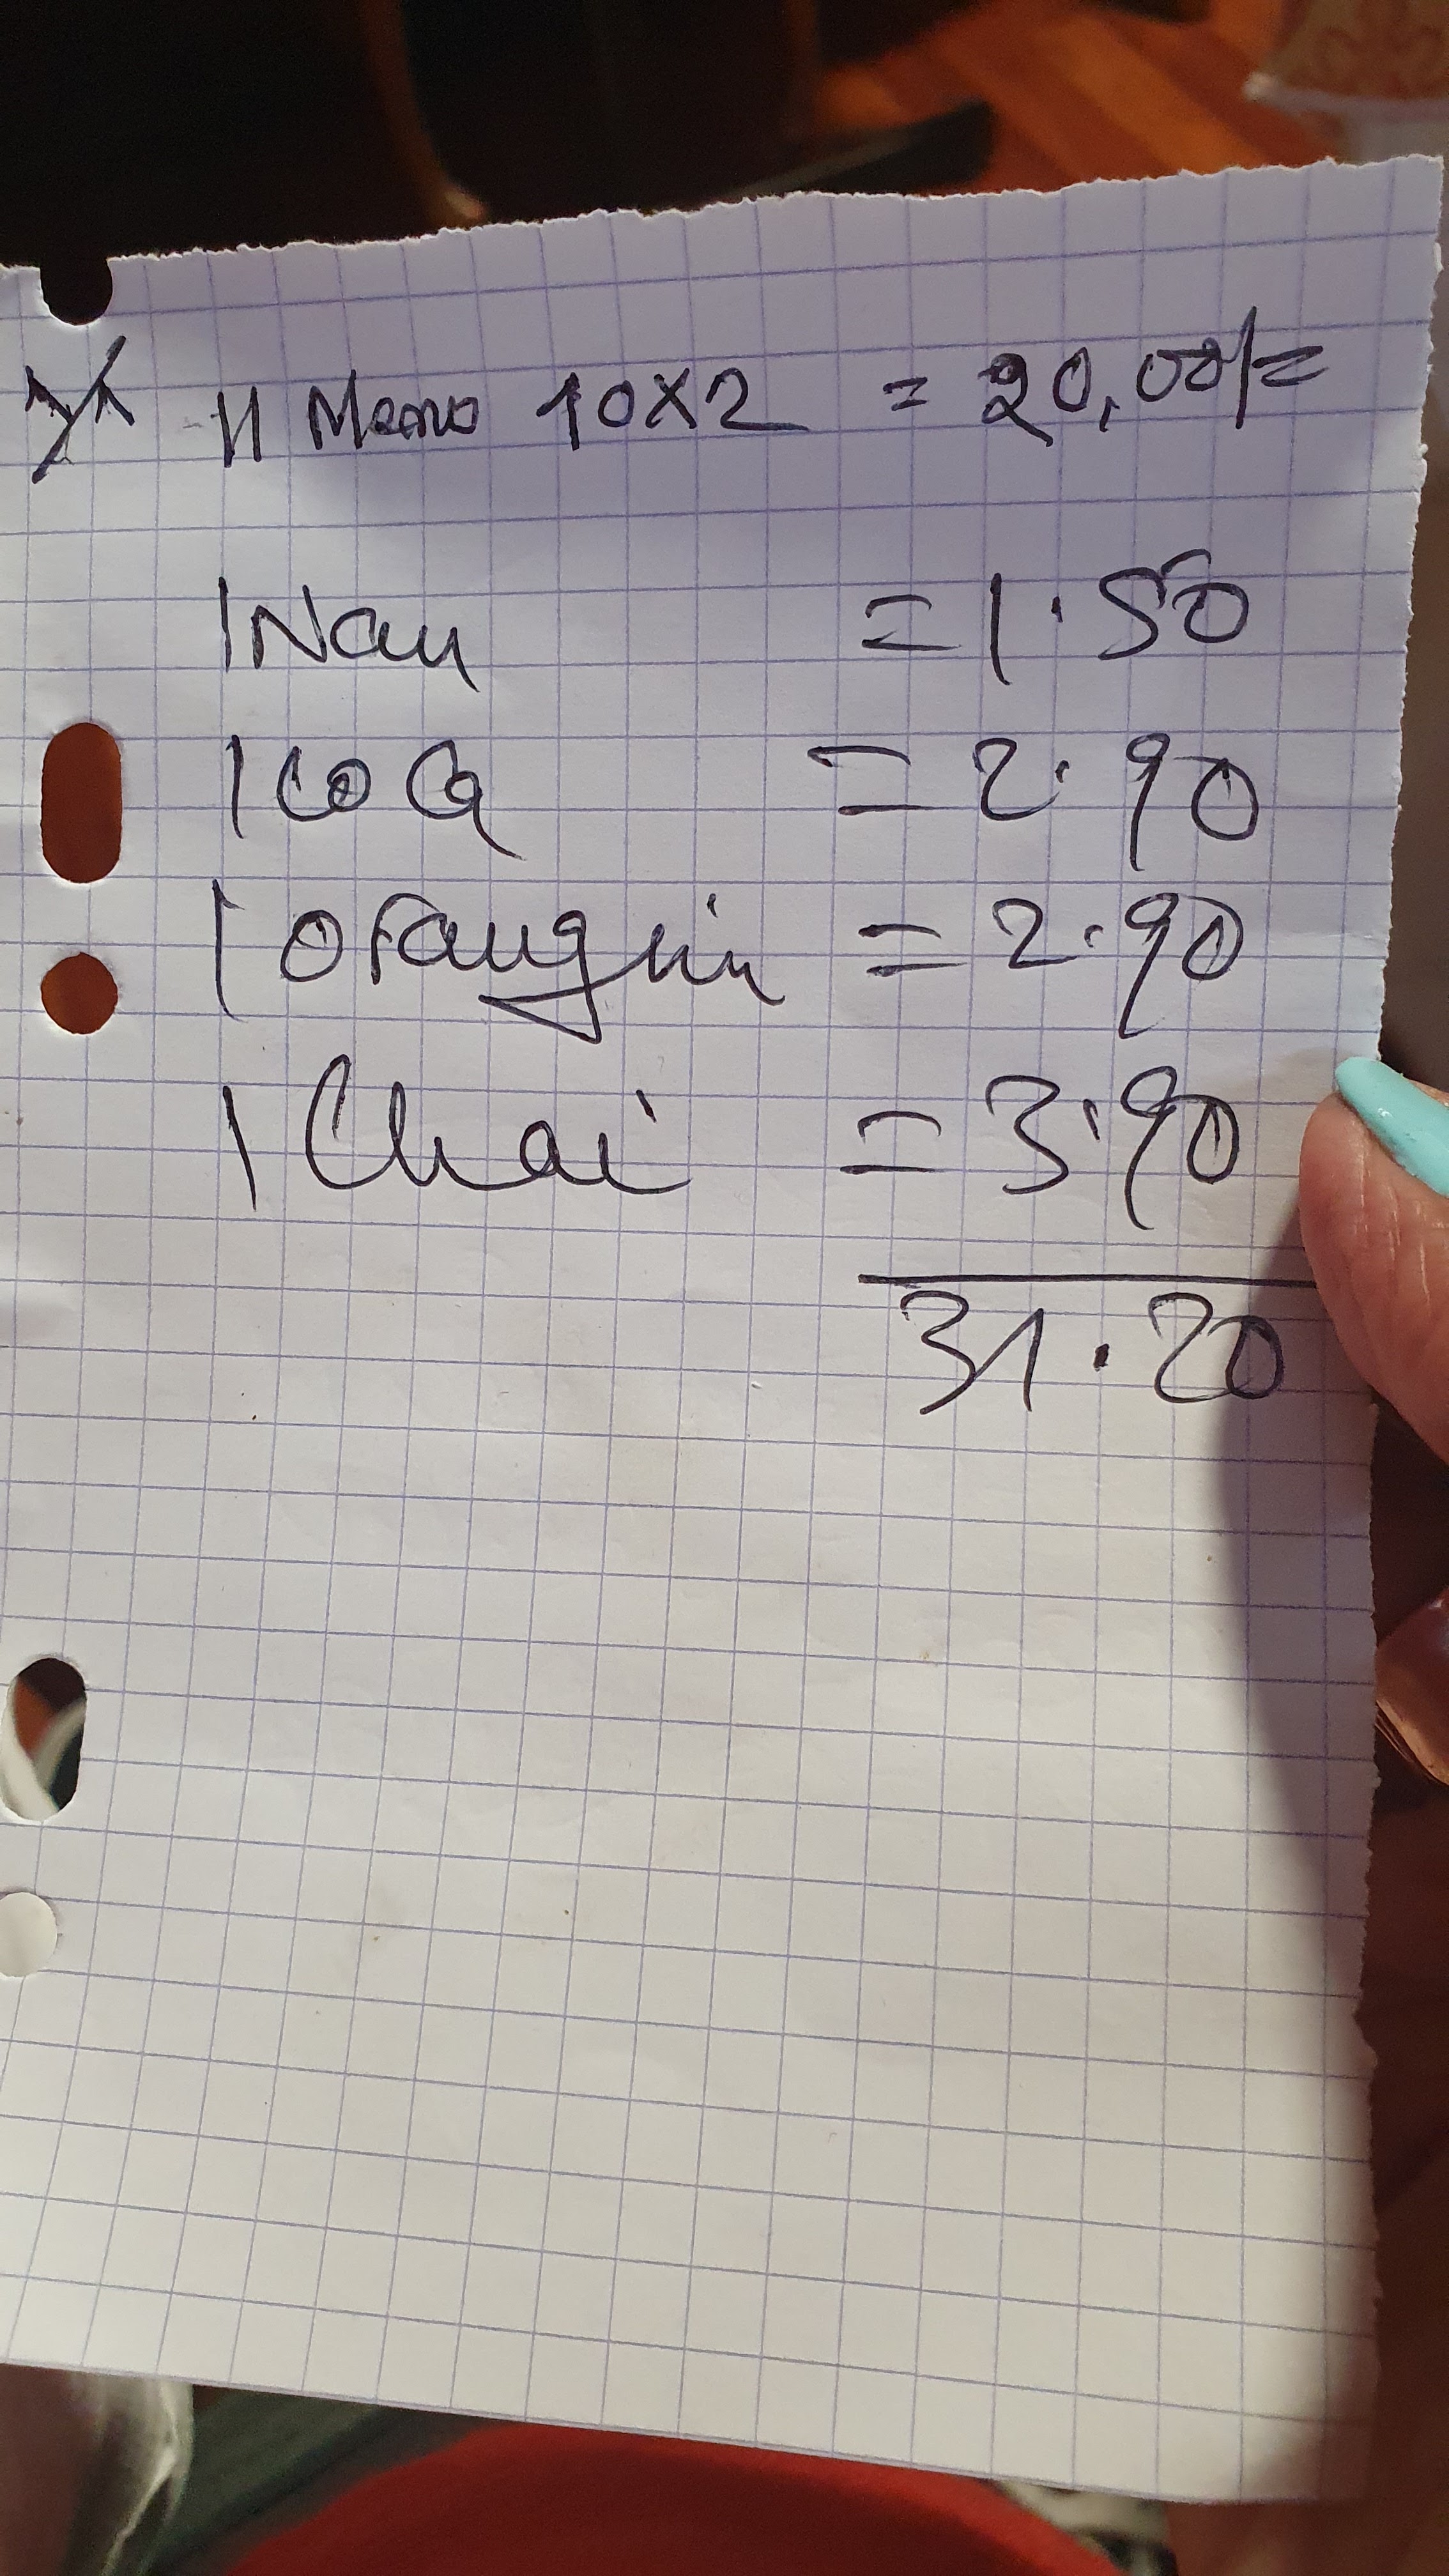 11 Menu 10x2 = 20,00/=
1 Nan = 1.50
1 coca = 2.90
1 orangin = 2.90
1 Chai = 3.90
31.20